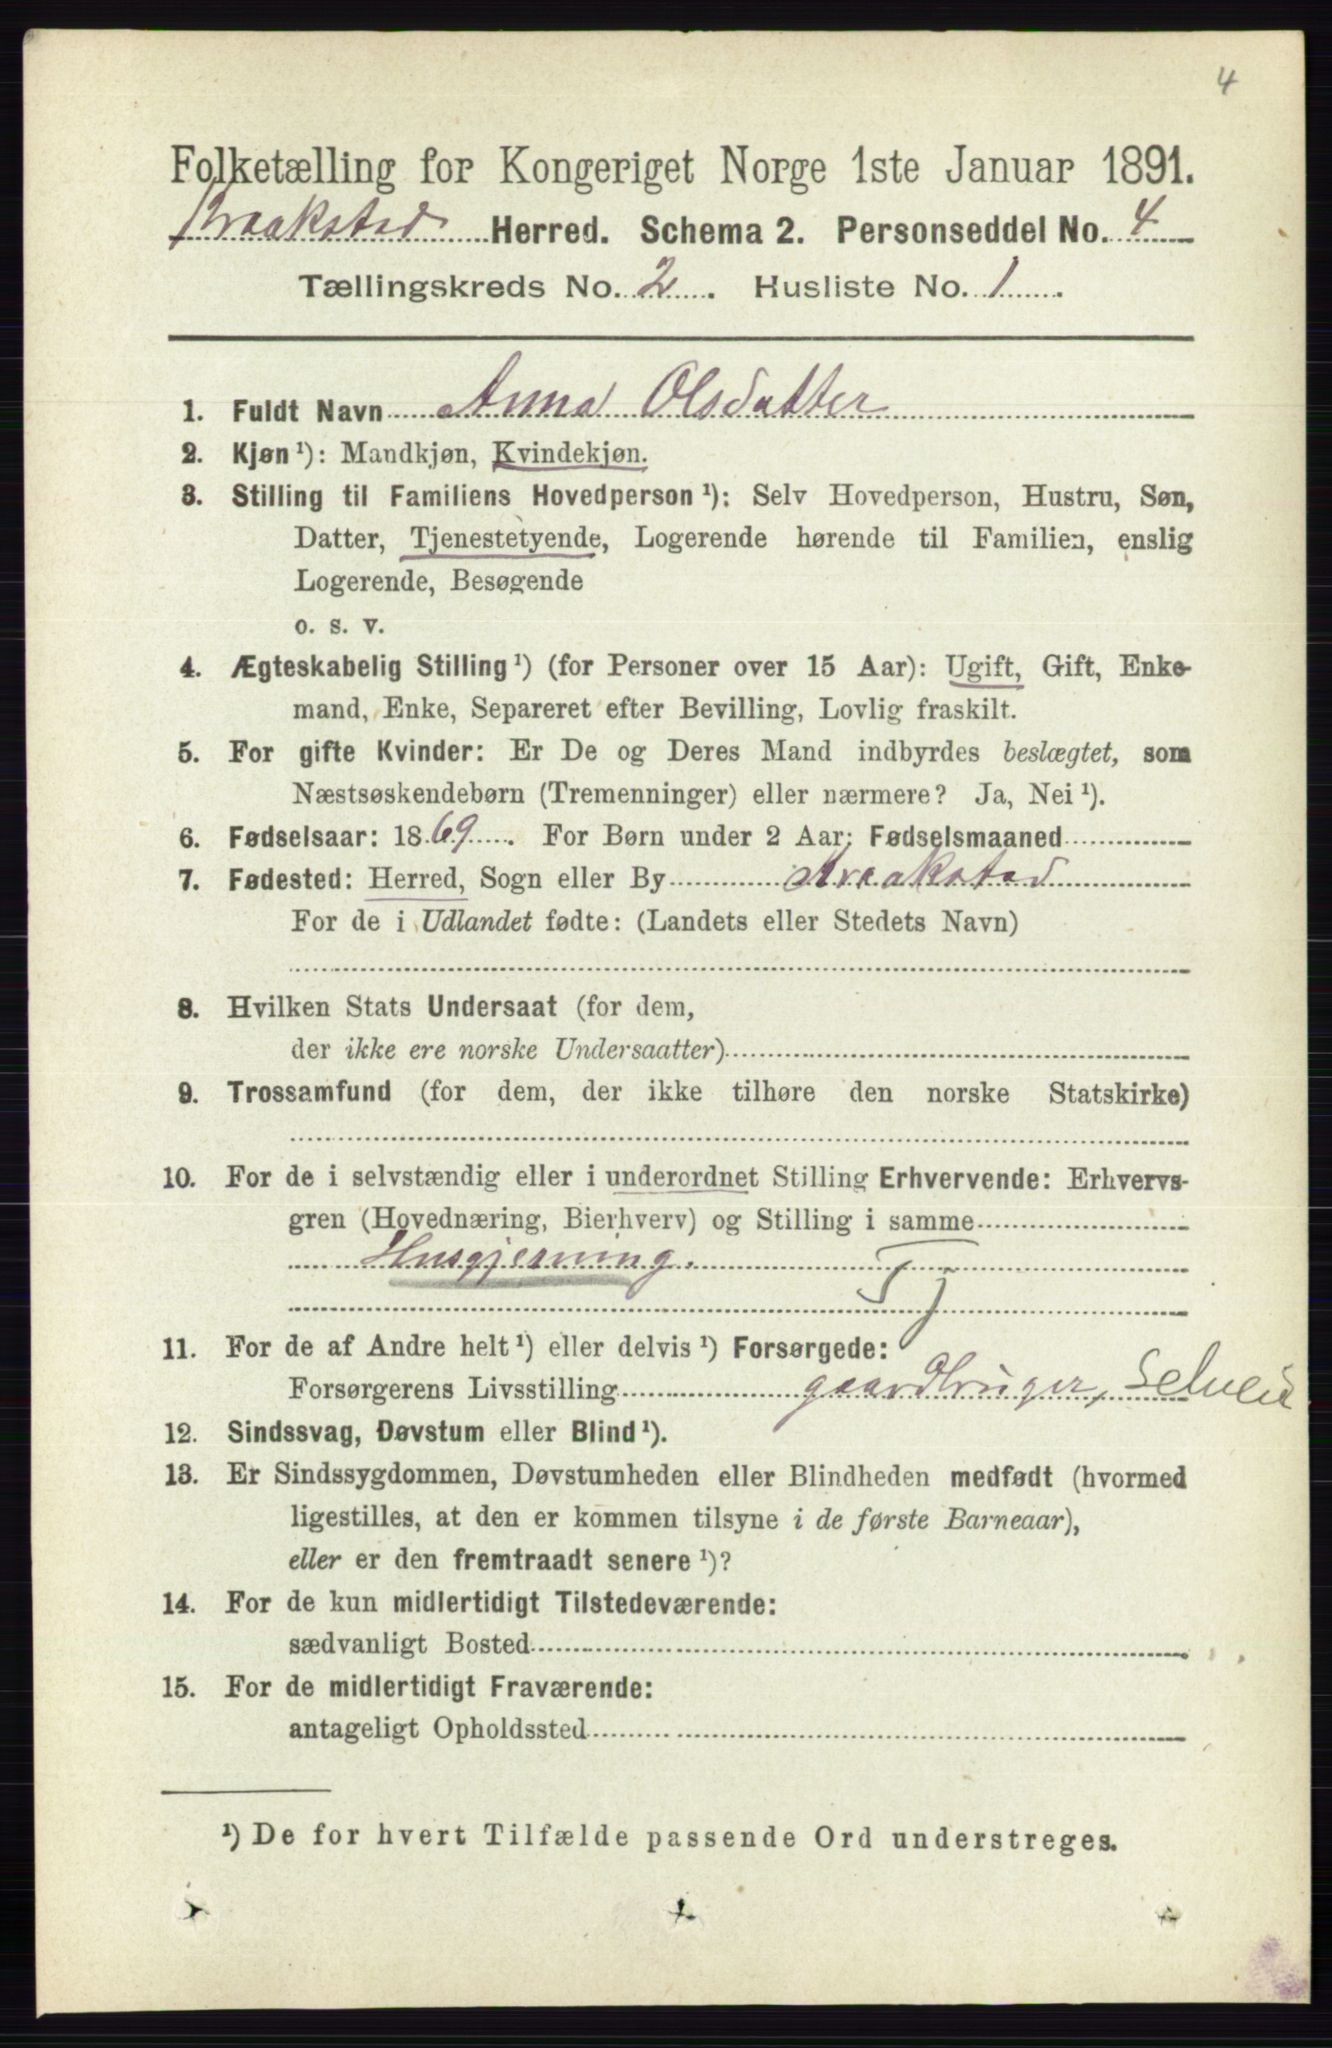 4
Folketælling for Kongeriget Norge 1ste Januar 1891.
Kraakstad Herred. Schema 2. Personseddel No. 4
Tællingskreds No. 2. Husliste No. 1.
1. Fuldt Navn Anna Olsdatter
2. Kjøn ¹): Mandkjøn, Kvindekjøn.
3. Stilling til Familiens Hovedperson ¹): Selv Hovedperson, Hustru, Søn,
Datter, Tjenestetyende, Logerende hørende til Familien, enslig
Logerende, Besøgende
o. s. v.
4. Ægteskabelig Stilling ¹) (for Personer over 15 Aar): Ugift, Gift, Enke-
mand, Enke, Separeret efter Bevilling, Lovlig fraskilt.
5. For gifte Kvinder: Er De og Deres Mand indbyrdes beslægtet, som
Næstsøskendebørn (Tremenninger) eller nærmere? Ja, Nei ¹).
6. Fødselsaar: 1869. For Børn under 2 Aar: Fødselsmaaned
7. Fødested: Herred, Sogn eller By Kraakstad
For de i Udlandet fødte: (Landets eller Stedets Navn)
8. Hvilken Stats Undersaat (for dem,
der ikke ere norske Undersaatter)
9. Trossamfund (for dem, der ikke tilhøre den norske Statskirke)
10. For de i selvstændig eller i underordnet Stilling Erhvervende: Erhvervs-
gren (Hovednæring, Bierhverv) og Stilling i samme
Husgjerning. Tj
11. For de af Andre helt ¹) eller delvis ¹) Forsørgede:
Forsørgerens Livsstilling gaardbruger,
12. Sindssvag, Døvstum eller Blind ¹).
13. Er Sindssygdommen, Døvstumheden eller Blindheden medfødt (hvormed
ligestilles, at den er kommen tilsyne i de første Barneaar),
eller er den fremtraadt senere ¹)?
14. For de kun midlertidigt Tilstedeværende:
sædvanligt Bosted
15. For de midlertidigt Fraværende:
antageligt Opholdssted
¹) De for hvert Tilfælde passende Ord understreges.